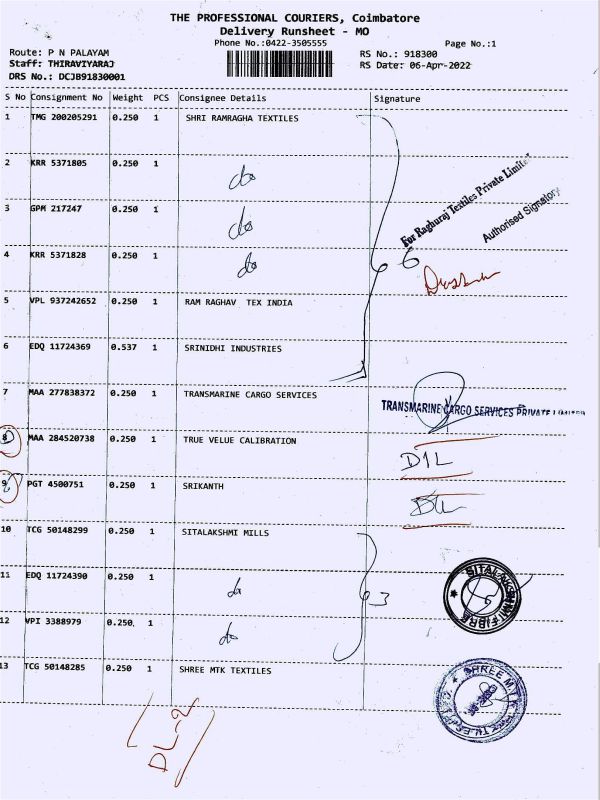 THE PROFESSIONAL COURIERS, Coimbatore
Delivery Runsheet - MO
Phone No.:0422-3505555
Page No.:1
Route: P N PALAYAM
RS No.: 918300
Staff: THIRAVIYARAJ
RS Date: 06-Apr-2022
DRS No.: DCJB91830001
S No Consignment No Weight PCS Consignee Details Signature
1 TMG 200205291 0.250 1 SHRI RAMRAGHA TEXTILES
2 KRR 5371805 0.250 1 do
3 GPM 217247 0.250 1 do
For Raghuraj Textiles Private Limited
Authorised Signatory
4 KRR 5371828 0.250 1 do
6
5 VPL 937242652 0.250 1 RAM RAGHAV TEX INDIA
6 EDQ 11724369 0.537 1 SRINIDHI INDUSTRIES
7 MAA 277838372 0.250 1 TRANSMARINE CARGO SERVICES
TRANSMARINE CARGO SERVICES PRIVATE LIMITED
8 MAA 284520738 0.250 1 TRUE VELUE CALIBRATION
9 PGT 4500751 0.250 1 SRIKANTH
10 TCG 50148299 0.250 1 SITALAKSHMI MILLS
11 EDQ 11724390 0.250 1 do
3
SITALAKSHMI FIBRE
12 VPI 3388979 0.250. 1 do
13 TCG 50148285 0.250 1 SHREE MTK TEXTILES
SHREE MTK TEXTILES
DL-2